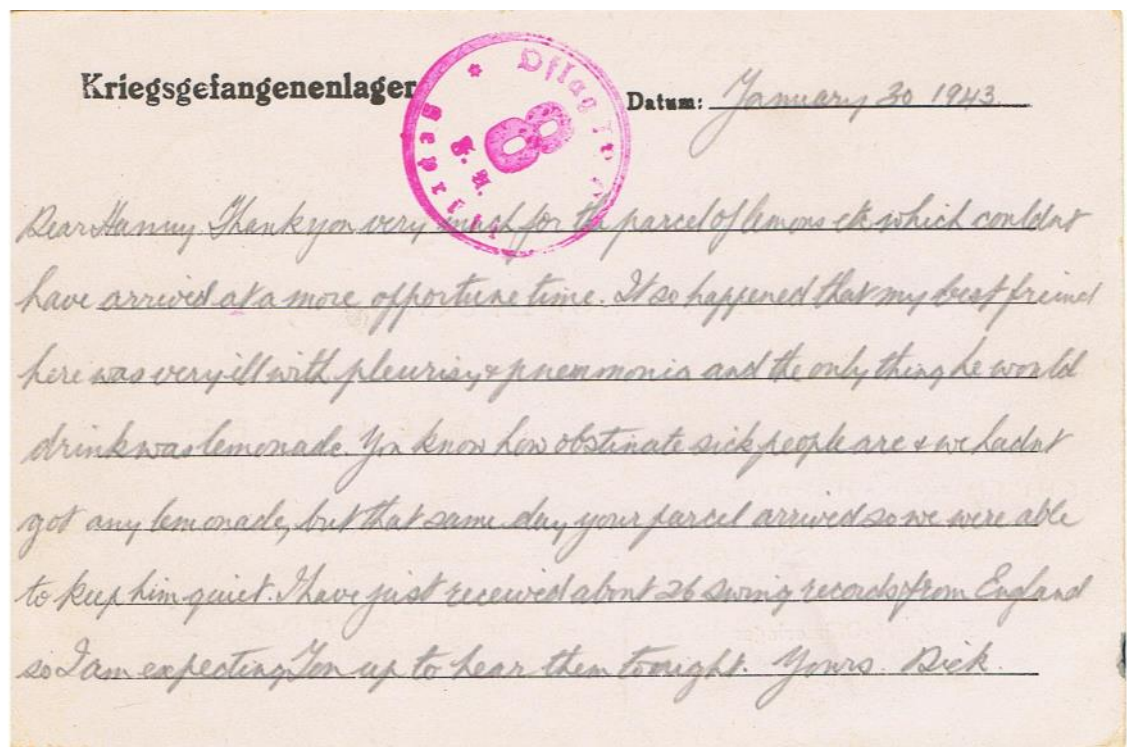 Kriegsgefangenenlager
Datum: January 30 1943
Oflag IV C
88
Geprüft
Dear Hanny. Thank you very much for the parcel of lemons etc which couldnt
have arrived at a more opportune time. It so happened that my best friend
here was very ill with pleurisy & pneumonia and the only thing he would
drink was lemonade. You know how obstinate sick people are & we hadnt
got any lemonade, but that same day your parcel arrived so we were able
to keep him quiet. I have just received about 26 swing records from England
so I am expecting you up to hear them tonight. Yours. Dick.